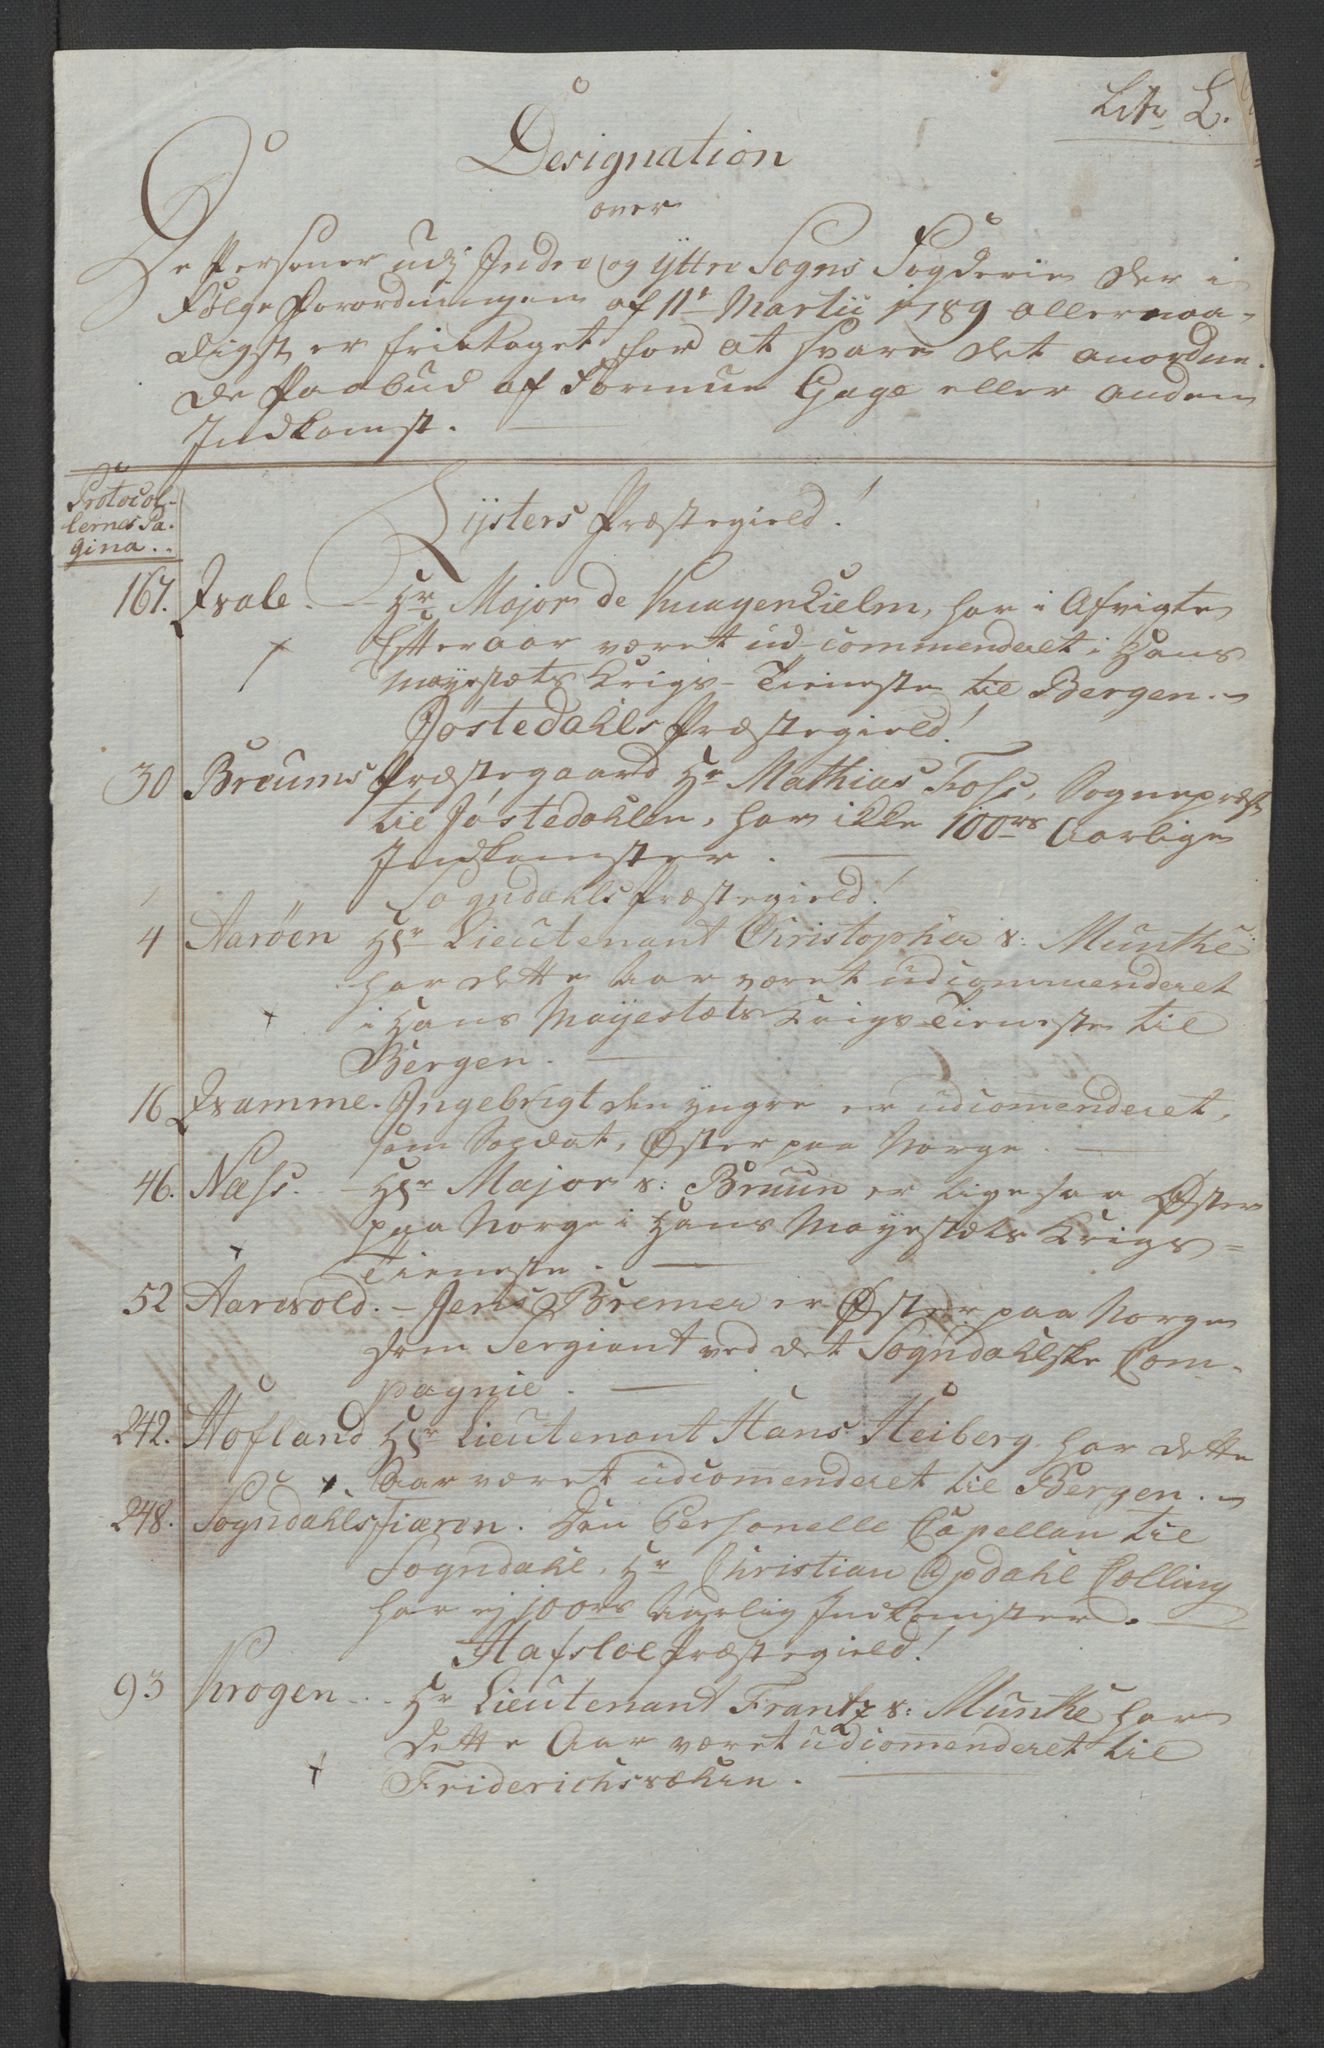 Litr. L.
Designation
over
De Personer udj Indre og Yttre Sogns Fogderie der i
Følge Forordningen af 11te Martii 1789 allernaa-
digst er fritaget for at svare det anordne-
de Paabud af Formue Gage eller anden
Indkomst.
Protocol-
lernes Pa-
gina..
Lysters Præstegield!
167. Kvale. - Hr Major de Knagenhielm, har i Afvigte
Efteraar været ud commenderet i Hans
Mayestæts Krigs-Tieneste til Bergen. -
Jostedahls Præstegield!
30 Breums Præstegaard Hr Mathias Foss, Sognepræst
til Jostedahlen, har ikke 100rs Aarlige
Indkomster.
Sogndahls Præstegield!
4 Aarøen Hr Lieutenant Christopher v: Munthe
har dette Aar været udcommenderet
i Hans Mayestæts Krigs Tieneste til
Bergen.
16 Kvamme. Ingebrigt den yngre er udcomenderet,
som Soldat, Øster paa Norge.
46. Næss. - Hr Major v: Bruun er ligesaa Øster
paa Norge i Hans Mayestæts Krigs=
Tieneste.
52 Aarevold. - Jens Bremer er Øster paa Norge
som Sergiant ved det Sogndahlske Com-
pagnie.
242. Hofland Hr Lieutenant Hans Heiberg har dette
Aar været udcomenderet til Bergen. -
248. Sogndahlsfiæren. Den Personelle Capellan til
Sogndahl, Hr Christian Opdahl Colling
har ej 100rs Aarlig Indkomster.
Hafsloe Præstegield!
93 Krogen - . Hr Lieutenant Frantz v: Munthe har
dette Aar været udcomenderet til
Friderichsværn.